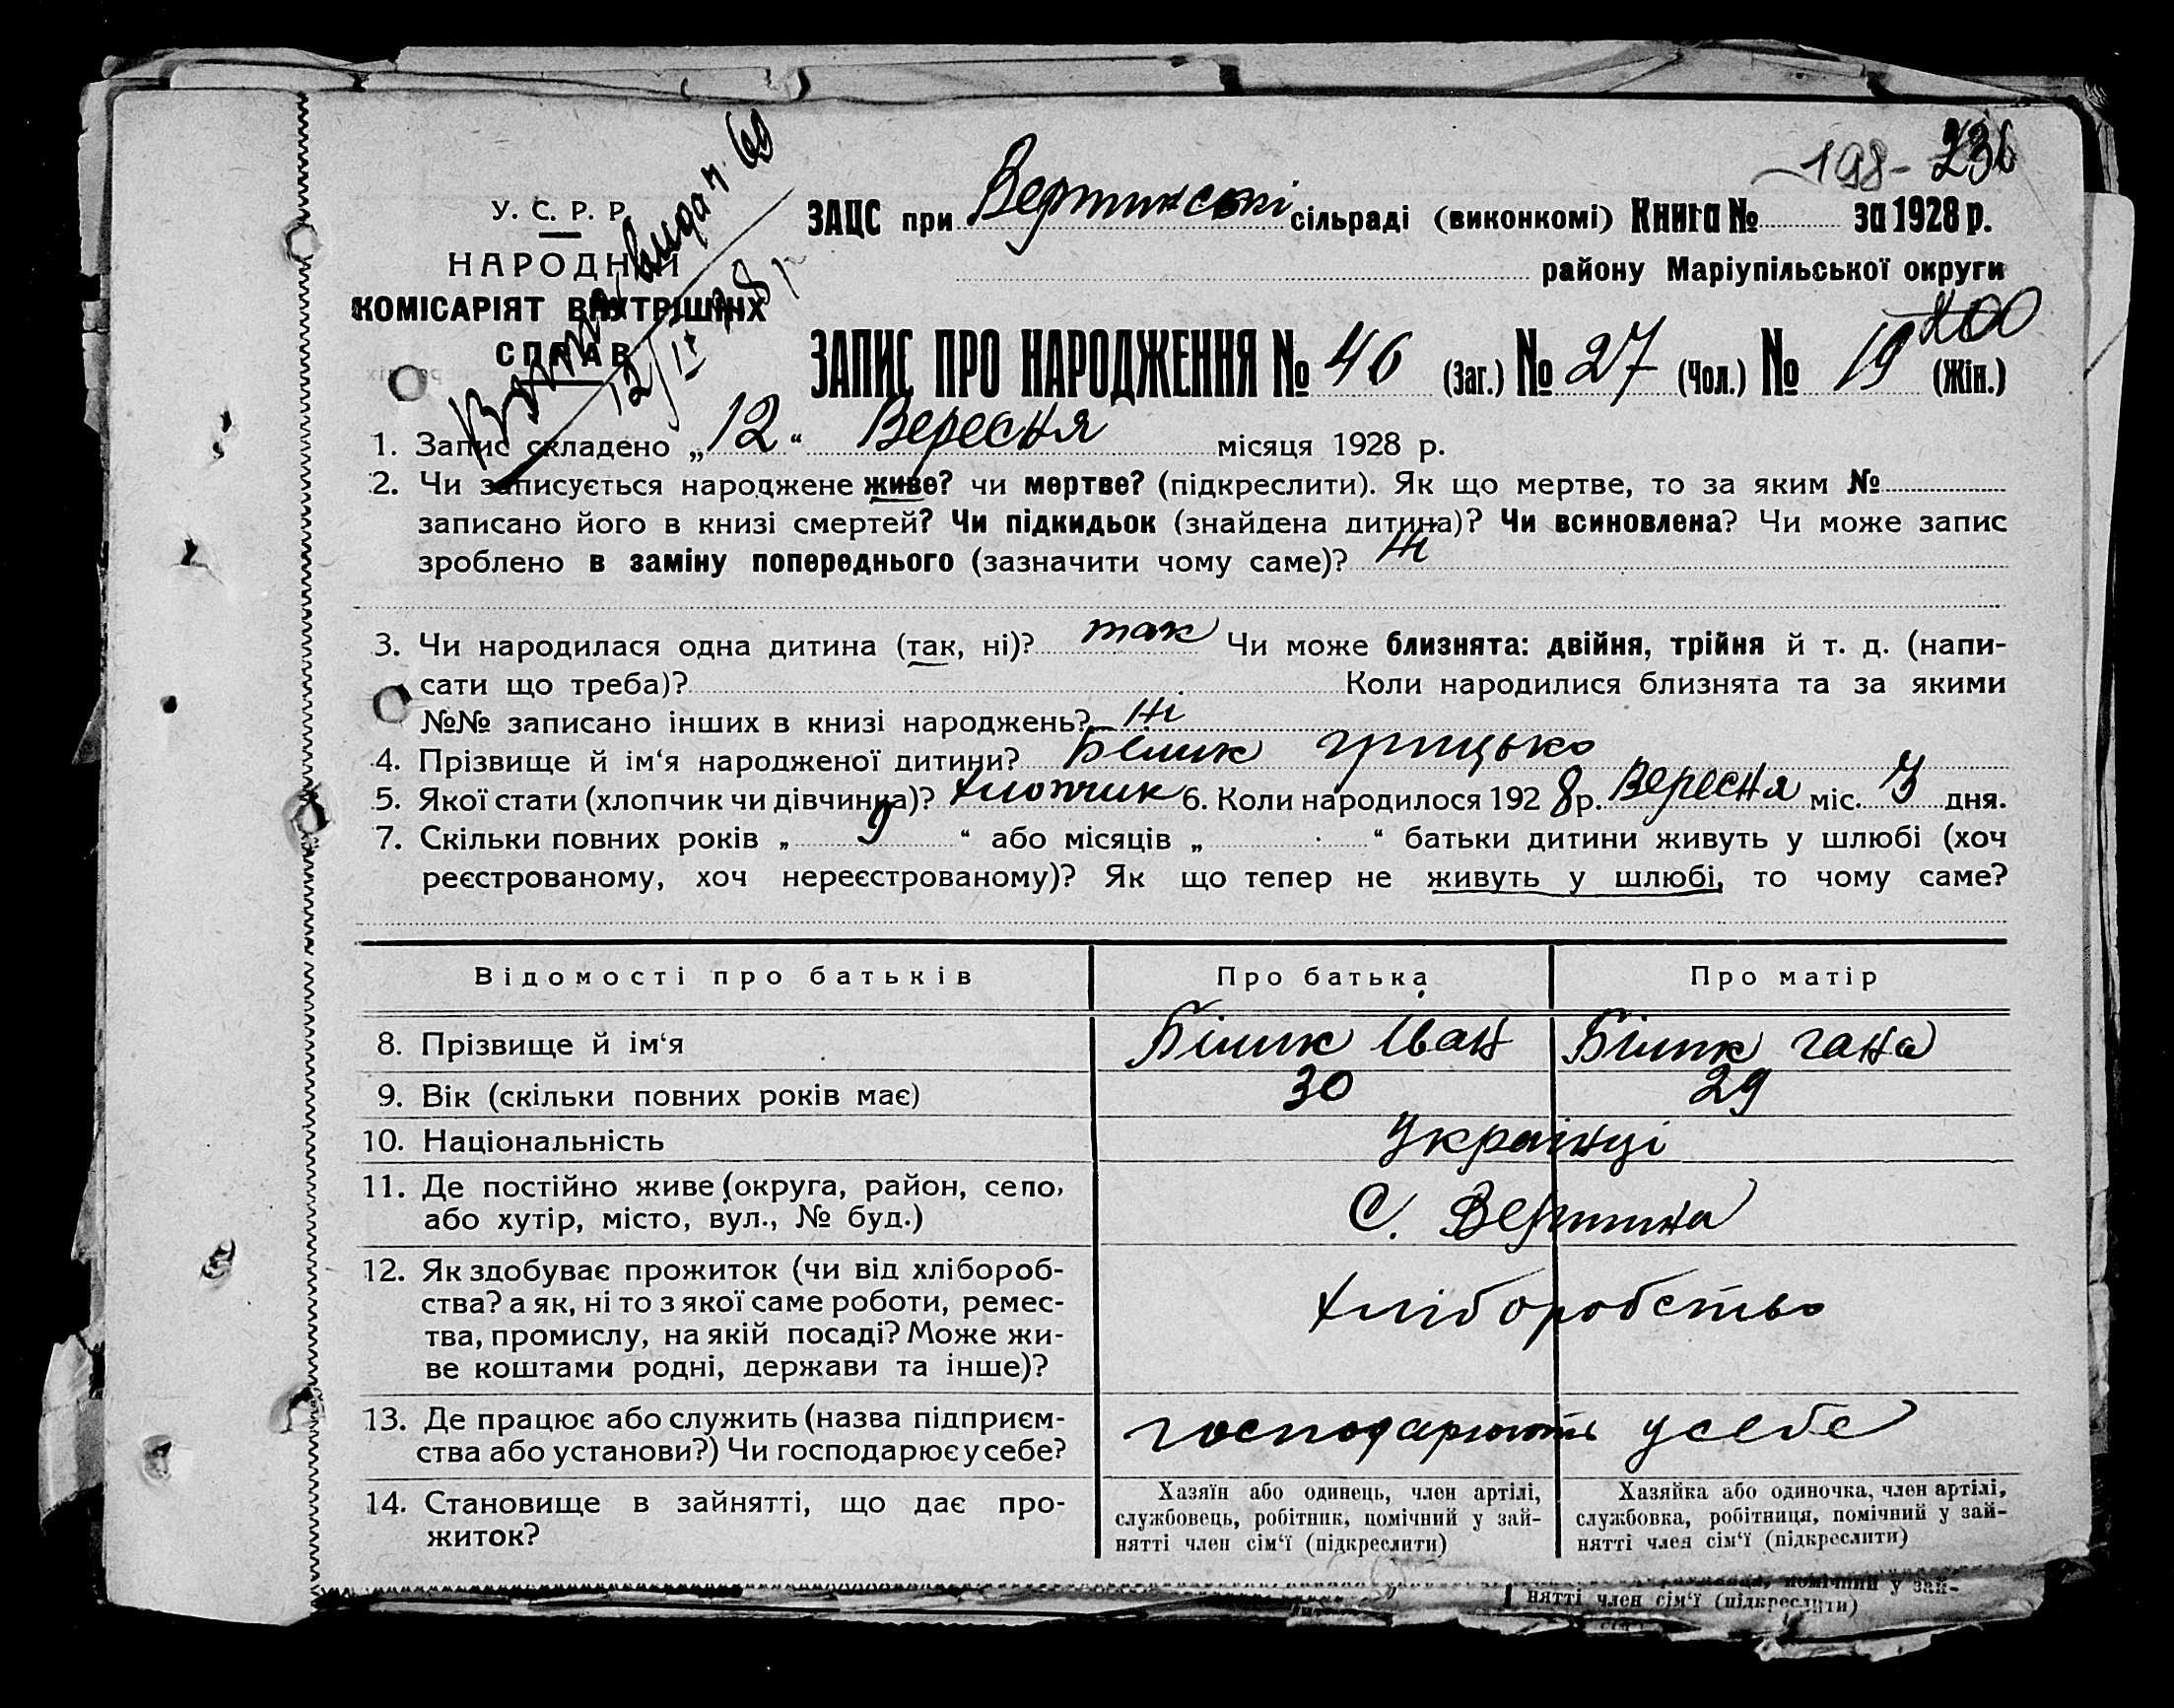 198- 236
У. С. Р. Р.
НАРОДНИЙ
КОМІСАРІЯТ ВНУТРІШНІХ
СПРАВ
12/IX 28 р
ЗАЦС при Вертинські сільраді (виконкомі) Книга № за 1928 р.
району Маріупільської округи
200
ЗАПИС ПРО НАРОДЖЕННЯ № 46 (Заг.) № 27 (Чол.) № 19 (Жін.)
1. Запис складено „ 12 “ Вересня місяця 1928 р.
2. Чи записується народжене живе? чи мертве? (підкреслити). Як що мертве, то за яким №
записано його в книзі смертей? Чи підкидьок (знайдена дитина)? Чи всиновлена? Чи може запис
зроблено в заміну попереднього (зазначити чому саме)? Ні
3. Чи народилася одна дитина (так, ні)? так Чи може близнята: двійня, трійня й т. д. (напи-
сати що треба)? Коли народилися близнята та за якими
№№ записано інших в книзі народжень? Ні
4. Прізвище й ім‘я народженої дитини? Білик грицько
5. Якої стати (хлопчик чи дівчинка)? хлопчик 6. Коли народилося 192 8 р. Вересня міс. 3 дня.
7. Скільки повних років „ 9 “ або місяців „ “ батьки дитини живуть у шлюбі (хоч
реєстрованому, хоч нереєстрованому)? Як що тепер не живуть у шлюбі, то чому саме?
Відомості про батьків Про батька Про матір
8. Прізвище й ім‘я Білик Іван Білик гана
9. Вік (скільки повних років має) 30 29
10. Національність Українці
11. Де постійно живе (округа, район, село,
або хутір, місто, вул., № буд.) С. Вертина
12. Як здобуває прожиток (чи від хлібороб-
ства? а як, ні то з якої саме роботи, ремес-
тва, промислу, на якій посаді? Може жи-
ве коштами родні, держави та інше)?
хліборобство
13. Де працює або служить (назва підприєм-
ства або установи?) Чи господарює у себе?
господарюють усебе
14. Становище в зайнятті, що дає про-
житок?
Хазяїн або одинець, член артілі,
службовець, робітник, помічний у зай-
нятті член сім‘ї (підкреслити)
Хазяйка або одиночка, член артілі,
службовка, робітниця, помічний у зай-
нятті член сім‘ї (підкреслити)
помічний у зай-
нятті член сім‘ї (підкреслити)